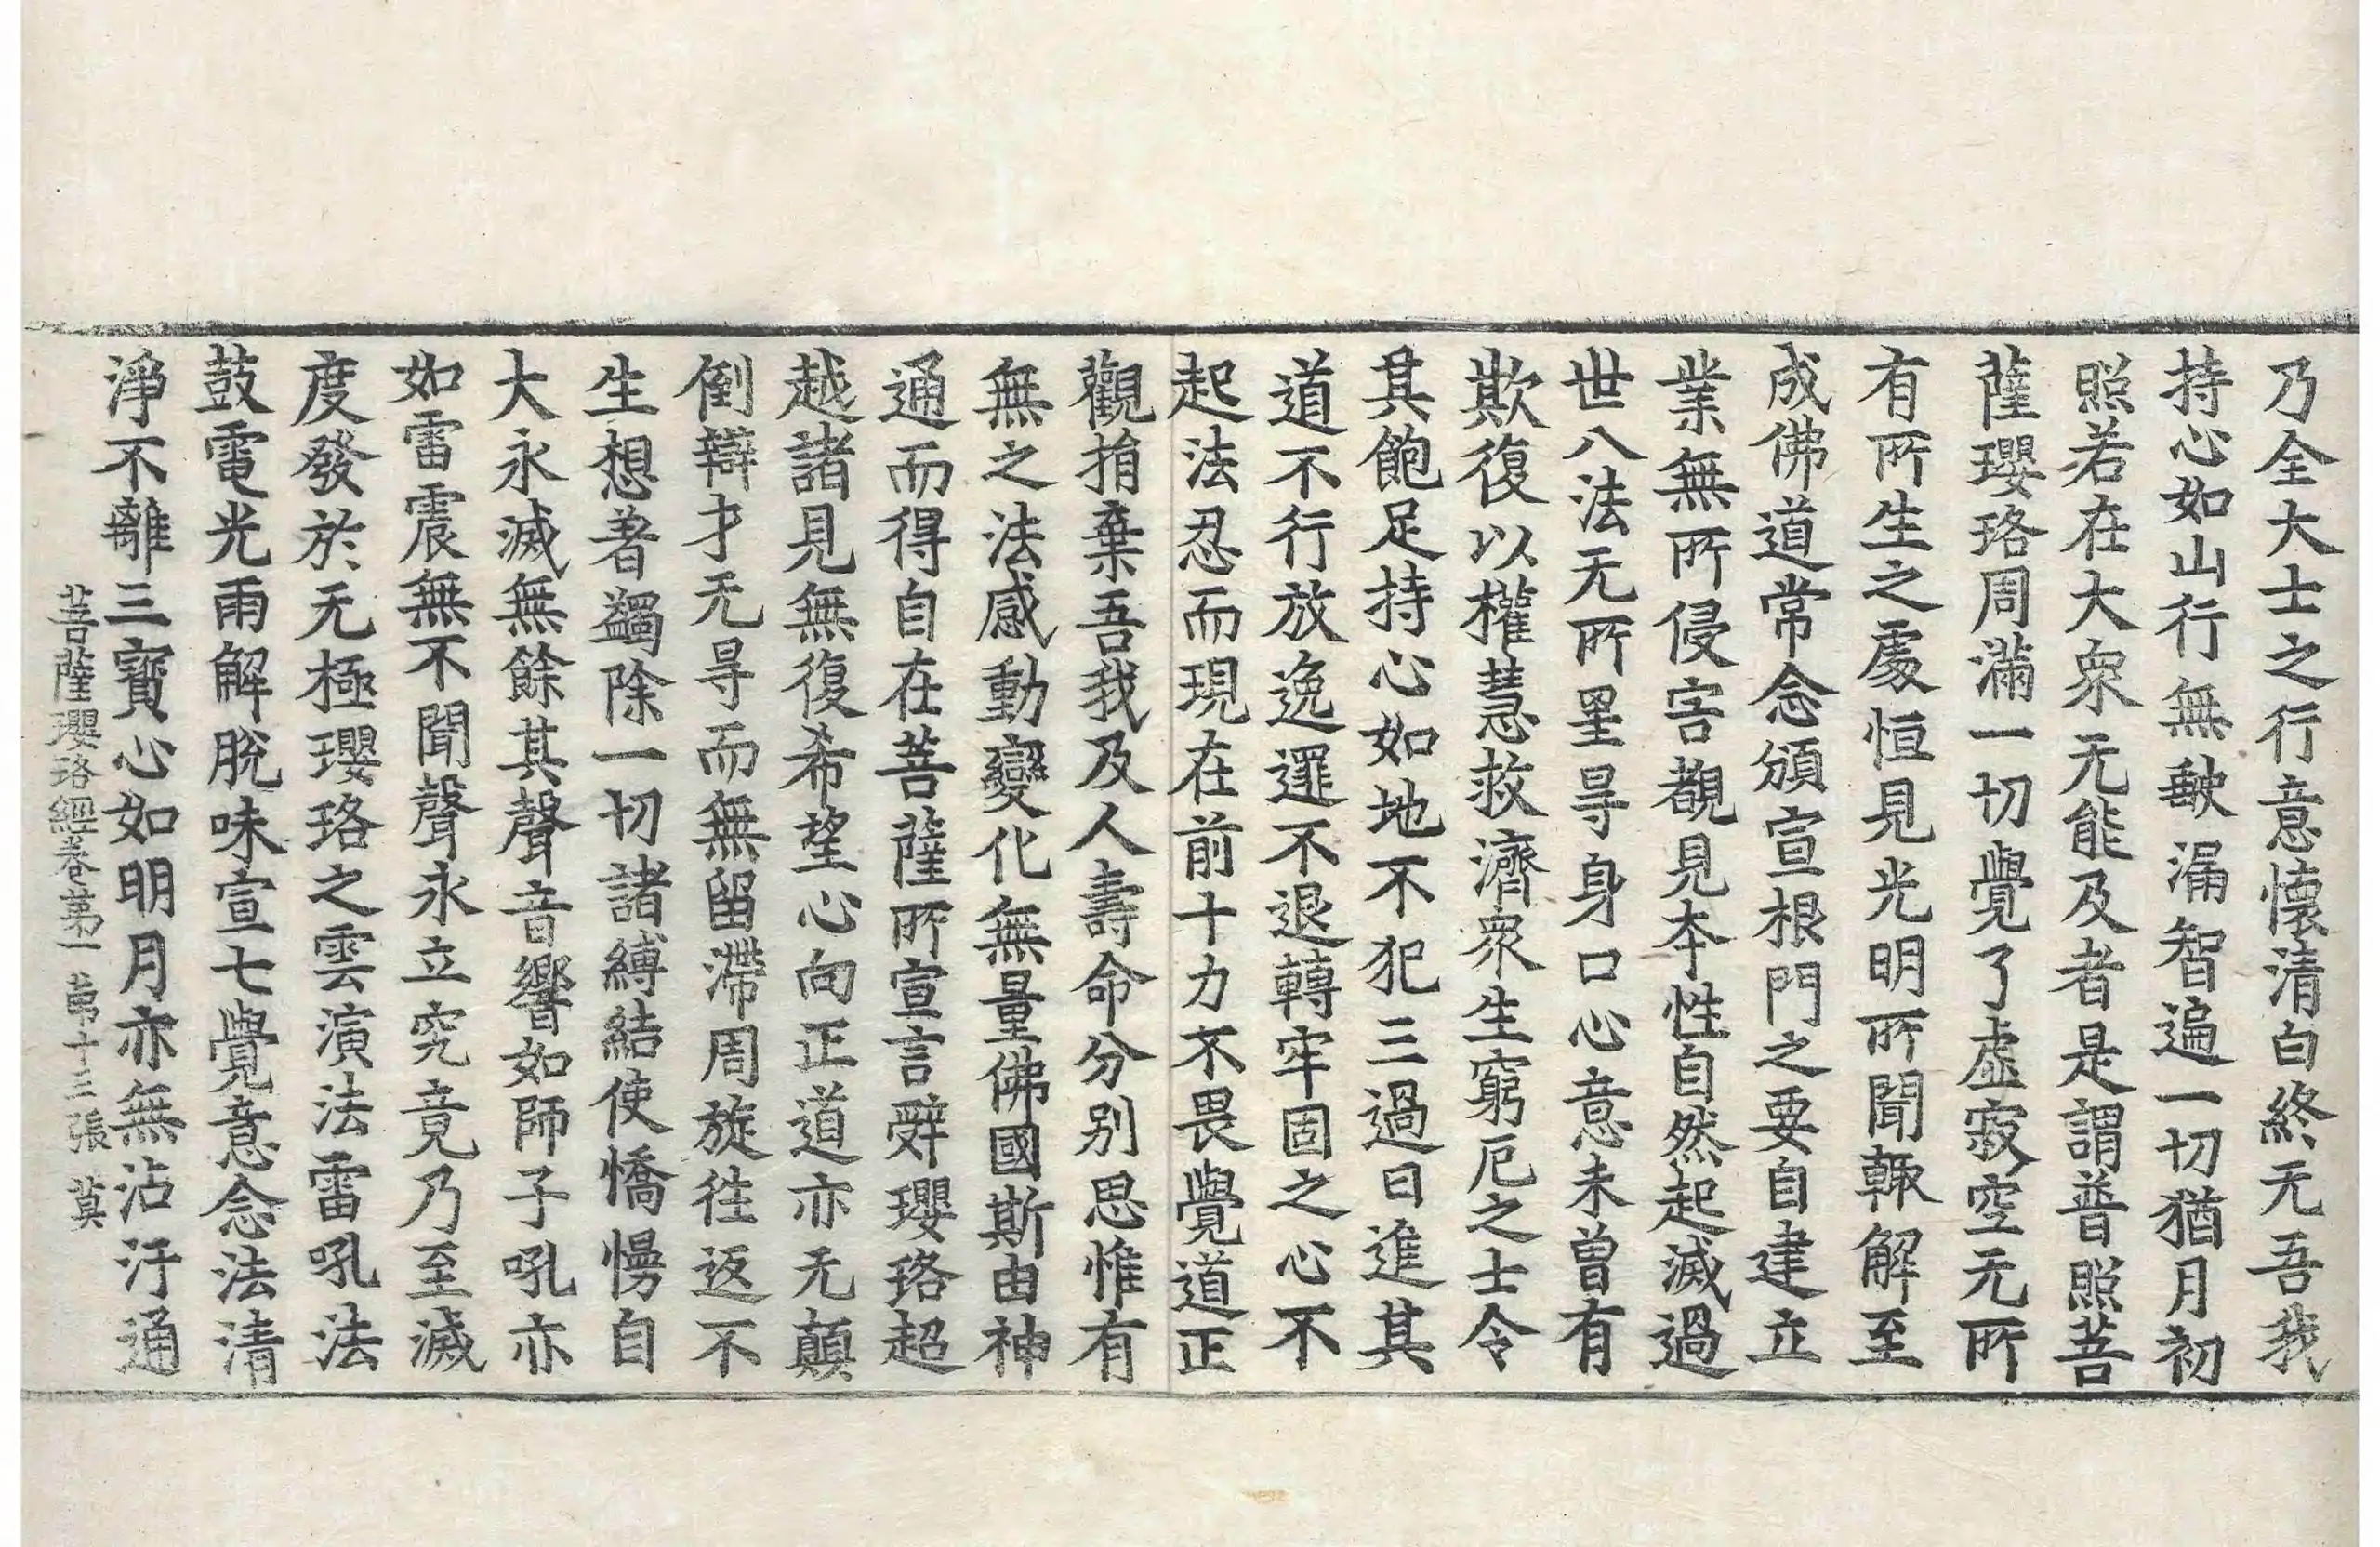 乃全大士之行意懷清白終无吾我
持心如山行無缺漏智遍一切猶月初
照若在大衆无能及者是謂普照菩
薩瓔珞周滿一切覺了虛寂空无所
有所生之處恒見光明所聞輙解至
成佛道常念頒宣根門之要自建立
業無所侵害覩見本性自然起滅過
世八法无所罣㝵身口心意未曾有
欺復以權慧救濟衆生窮厄之士令
其飽足持心如地不犯三過日進其
道不行放逸邏不退轉牢固之心不
起法忍而現在前十力不畏覺道正
觀捐棄吾我及人壽命分別思惟有
無之法感動變化無量佛國斯由神
通而得自在菩薩所宣言辭瓔珞超
越諸見無復希望心向正道亦无顛
倒辯才无㝵而無留滯周旋往返不
生想著蠲除一切諸縛結使憍慢自
大永滅無餘其聲音響如師子吼亦
如雷震無不聞聲永立究竟乃至滅
度發於无極瓔珞之雲演法雷吼法
鼓電光雨解脫味宣七覺意念法清
淨不離三寶心如明月亦無沾汙通
菩薩瓔珞經卷第一 第十三張 莫